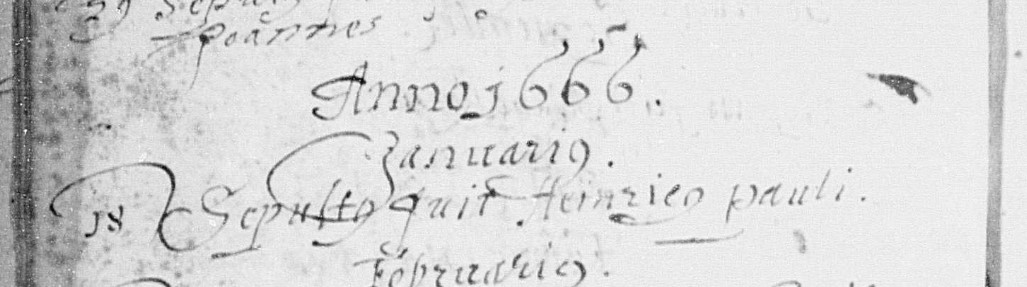 Joannes
Anno 1666.
Januariꝯ.
18 Sepultꝯ fuit Heinricꝯ pauli.
Februariꝯ.